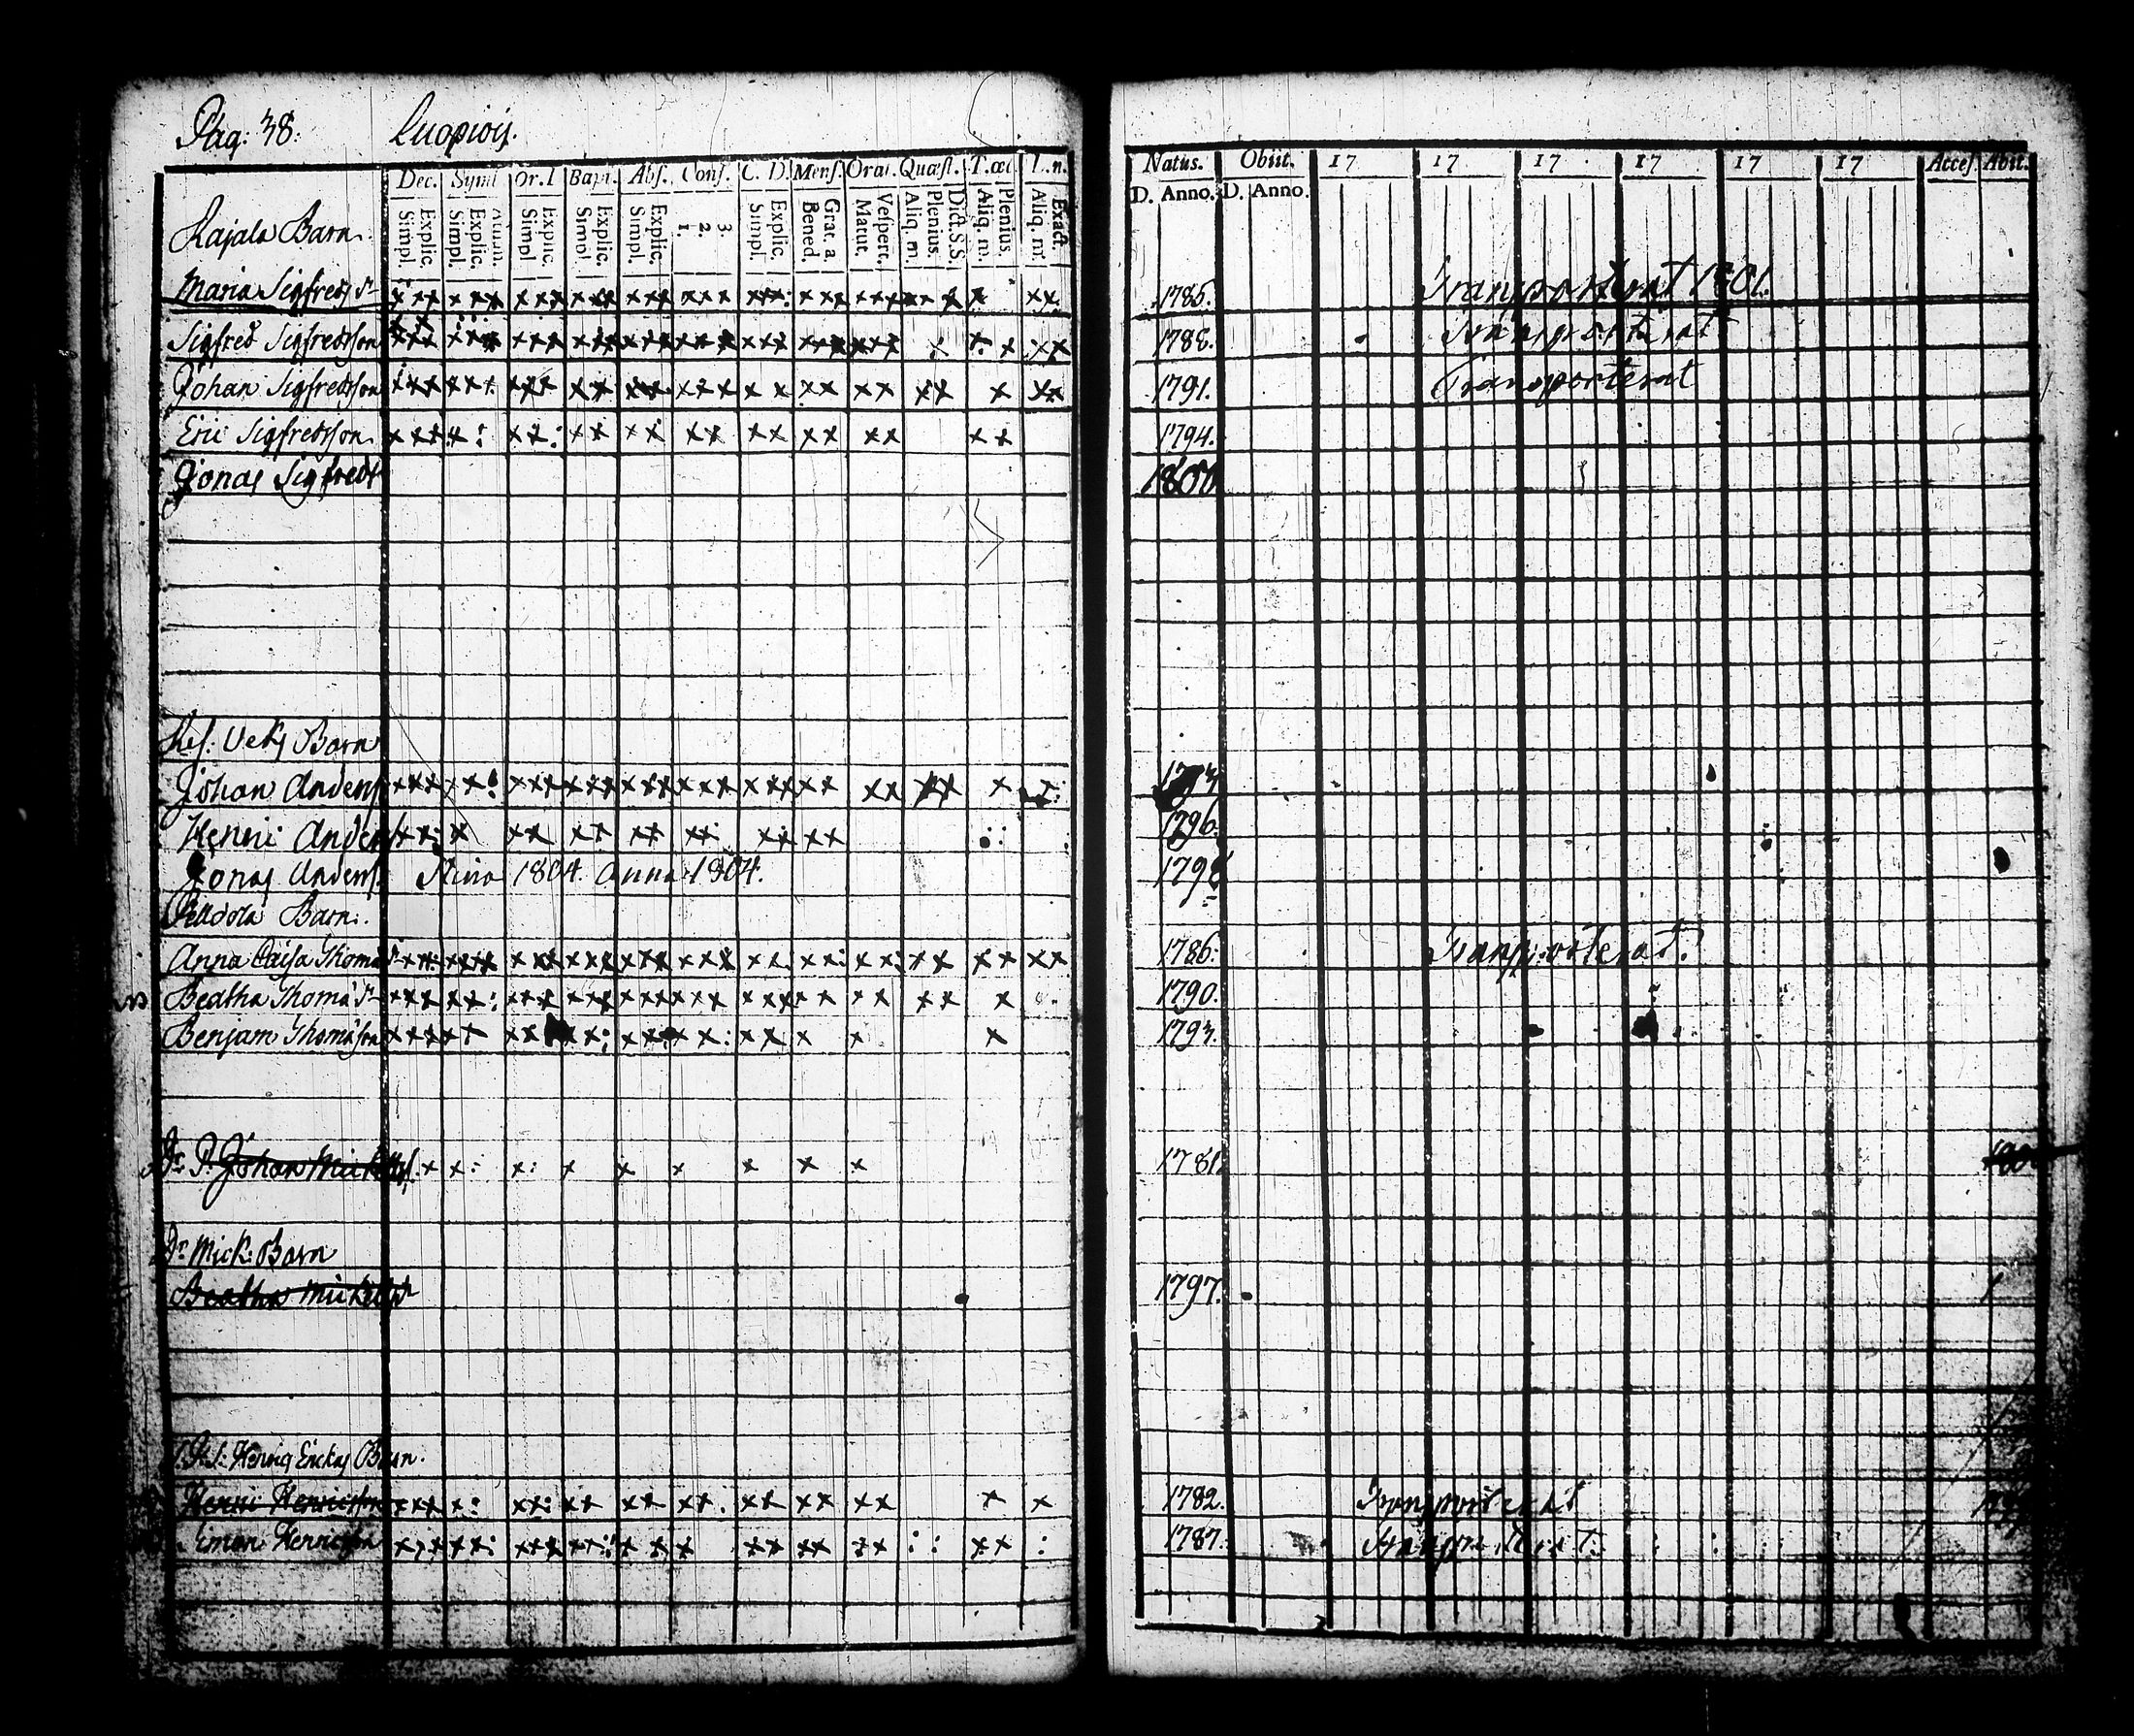 Pag: 38. Luopiois.
Dec. Symb Or. D Bapt. Abs. Conf. C. D. Mens. Orat. Quæst. T. œc L. n. Natus. Obiit. 17 17 17 17 17 17 Access. Abit.
Explic. Simpl. Athan. Explic. Simpl. Explic. Simpl Explic. Simpl Explic. Simpl. 3. 2. 1. Explic. Simpl. Grat. a Bened. Vespert. Matut. Dict. S.S. Plenius. Aliq. m. Plenius. Aliq. m. Exact. Aliq. m. D. Anno. D. Anno.
Rajala Barn.
Maria Sigfreds dr 1785. Transporterat 1801.
Sigfred Sigfredsson 1788. Transporterat
Johan Sigfredsson 1791. Transporterat
Eric Sigfredsson 1794.
Jonas Sigfreds 1800
Barn
Johan Anders
Henric Anders 1796.
Jonas Anders. Stina 1804. Anna 1804. 1798
Barn.
Anna Caisa Thomæ dr 1786. Transporterat.
Beatha Thomæ dr 1790.
Benjam Thomæson 1793.
Johan Mickelss. 1781.
Mick: Barn
Beatha Mickels dr 1797.
Henrics Erickss Barn.
Henric Henricsson 1782. Transporterat
Simon Henricsson 1787. Transporterat